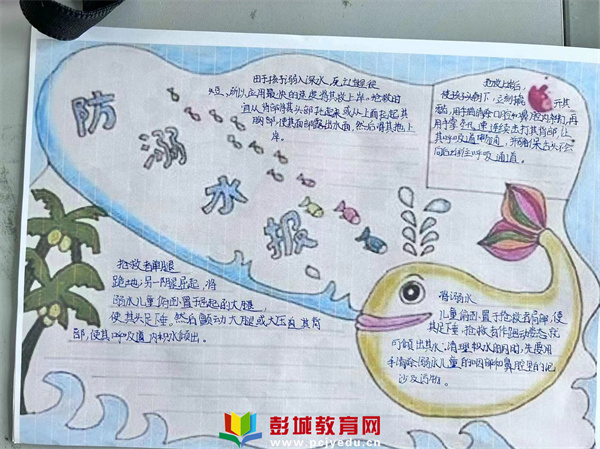 防溺水报
由于孩子弱入深水,反过程径
短,所以应用最快的速度将其救上岸。抢救时
宜从背部将其头部托起来或从上面拉起其
胸部,使其面部露出水面,然后将其拖上
岸。
抢救上岸后,
使孩头朝下,立刻撬开其
用手清除口腔和鼻腔内杂物,再
用手掌迅速连续击打其背部,让
其呼吸道畅通,并确保舌头不会
向后堵住呼吸通道。
抢救者单腿
跪地,另一腿屈起,将
溺水儿童俯面置于屈起的大腿
使其头足下垂,然后颤动大腿或大压迫其背
部,使其呼吸道内积水倾出。
将溺水
儿童俯面置于抢救者肩部,使
其足下垂,抢救者作跑动姿态就
可倾出其水,清理积水的同时,先要用
手清除溺水儿童的咽部和鼻腔里的泥
沙及污物。
彭城教育网
www.pcjyedu.cn